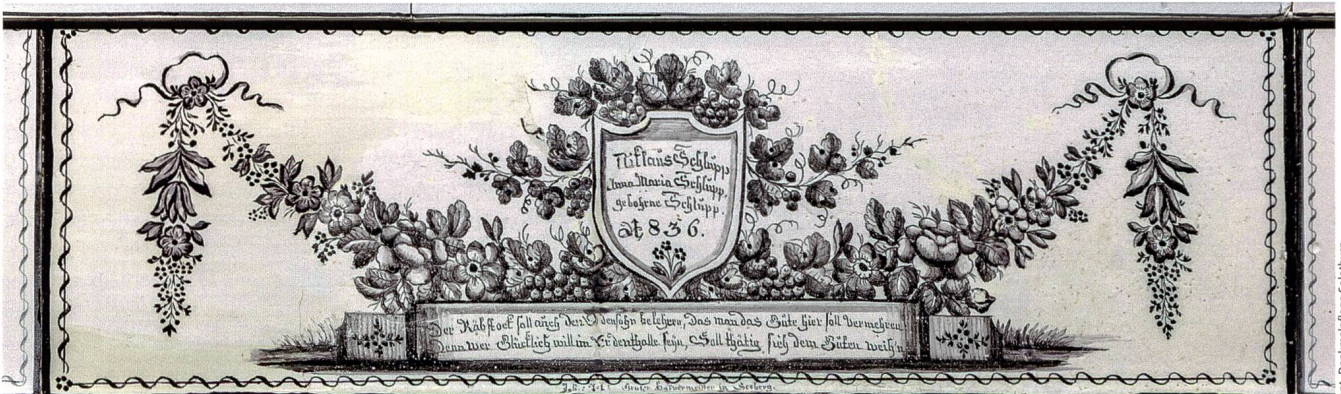 Niklaus Schlupp
Anna Maria Schlupp,
gebohrne Schlupp.
at, 836.
Der Räbstock soll auch den Erdensohn belehren, das man das Güte hier soll vermehren
Denn wer Glücklich will im Erdenthalle sein, Soll thätig sich dem Güten weih'n
Hafnermeister in Seeberg.